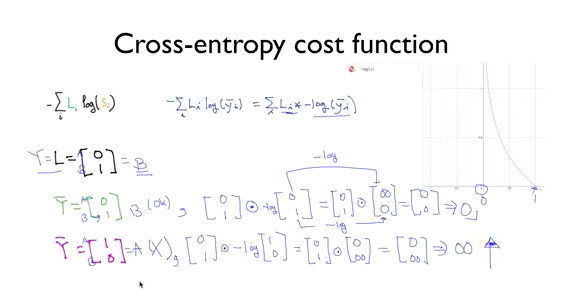 Cross-entropy cost function
-log(x)
-∑ᵢ Lᵢ log(Sᵢ)
-∑ᵢ Lᵢ log(ȳᵢ) = ∑ᵢ Lᵢ * -log(ȳᵢ)
Y = L = [0 1] = B
-log
Ȳ = [0 1] B (OK), [0 1] ⊙ -log [0 1] = [0 1] ⊙ [∞ 0] = [0 0] ⇒ 0,
-log
Ȳ = [1 0] = A (X), [0 1] ⊙ -log [1 0] = [0 1] ⊙ [0 ∞] = [0 ∞] ⇒ ∞ ↑
0
1